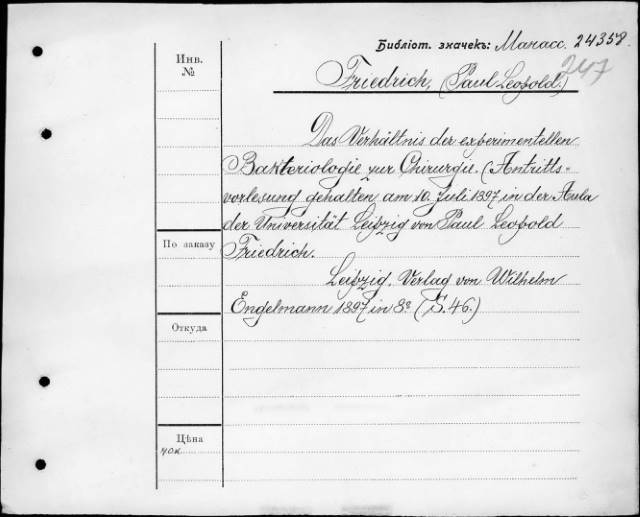 Библіот. значекъ: Манасс. 24358.
247
Инв.
№
Friedrich, (Paul Leopold.)
Das Verhältnis der experimentellen
Bakteriologie zur Chirurgie. (Antritts-
vorlesung gehalten am 10. Juli 1897 in der Aula
der Universität Leipzig von Paul Leopold
По заказу
Friedrich.
Leipzig. Verlag von Wilhelm
Engelmann 1897 in 8º (S. 46.)
Откуда
Цѣна
40к